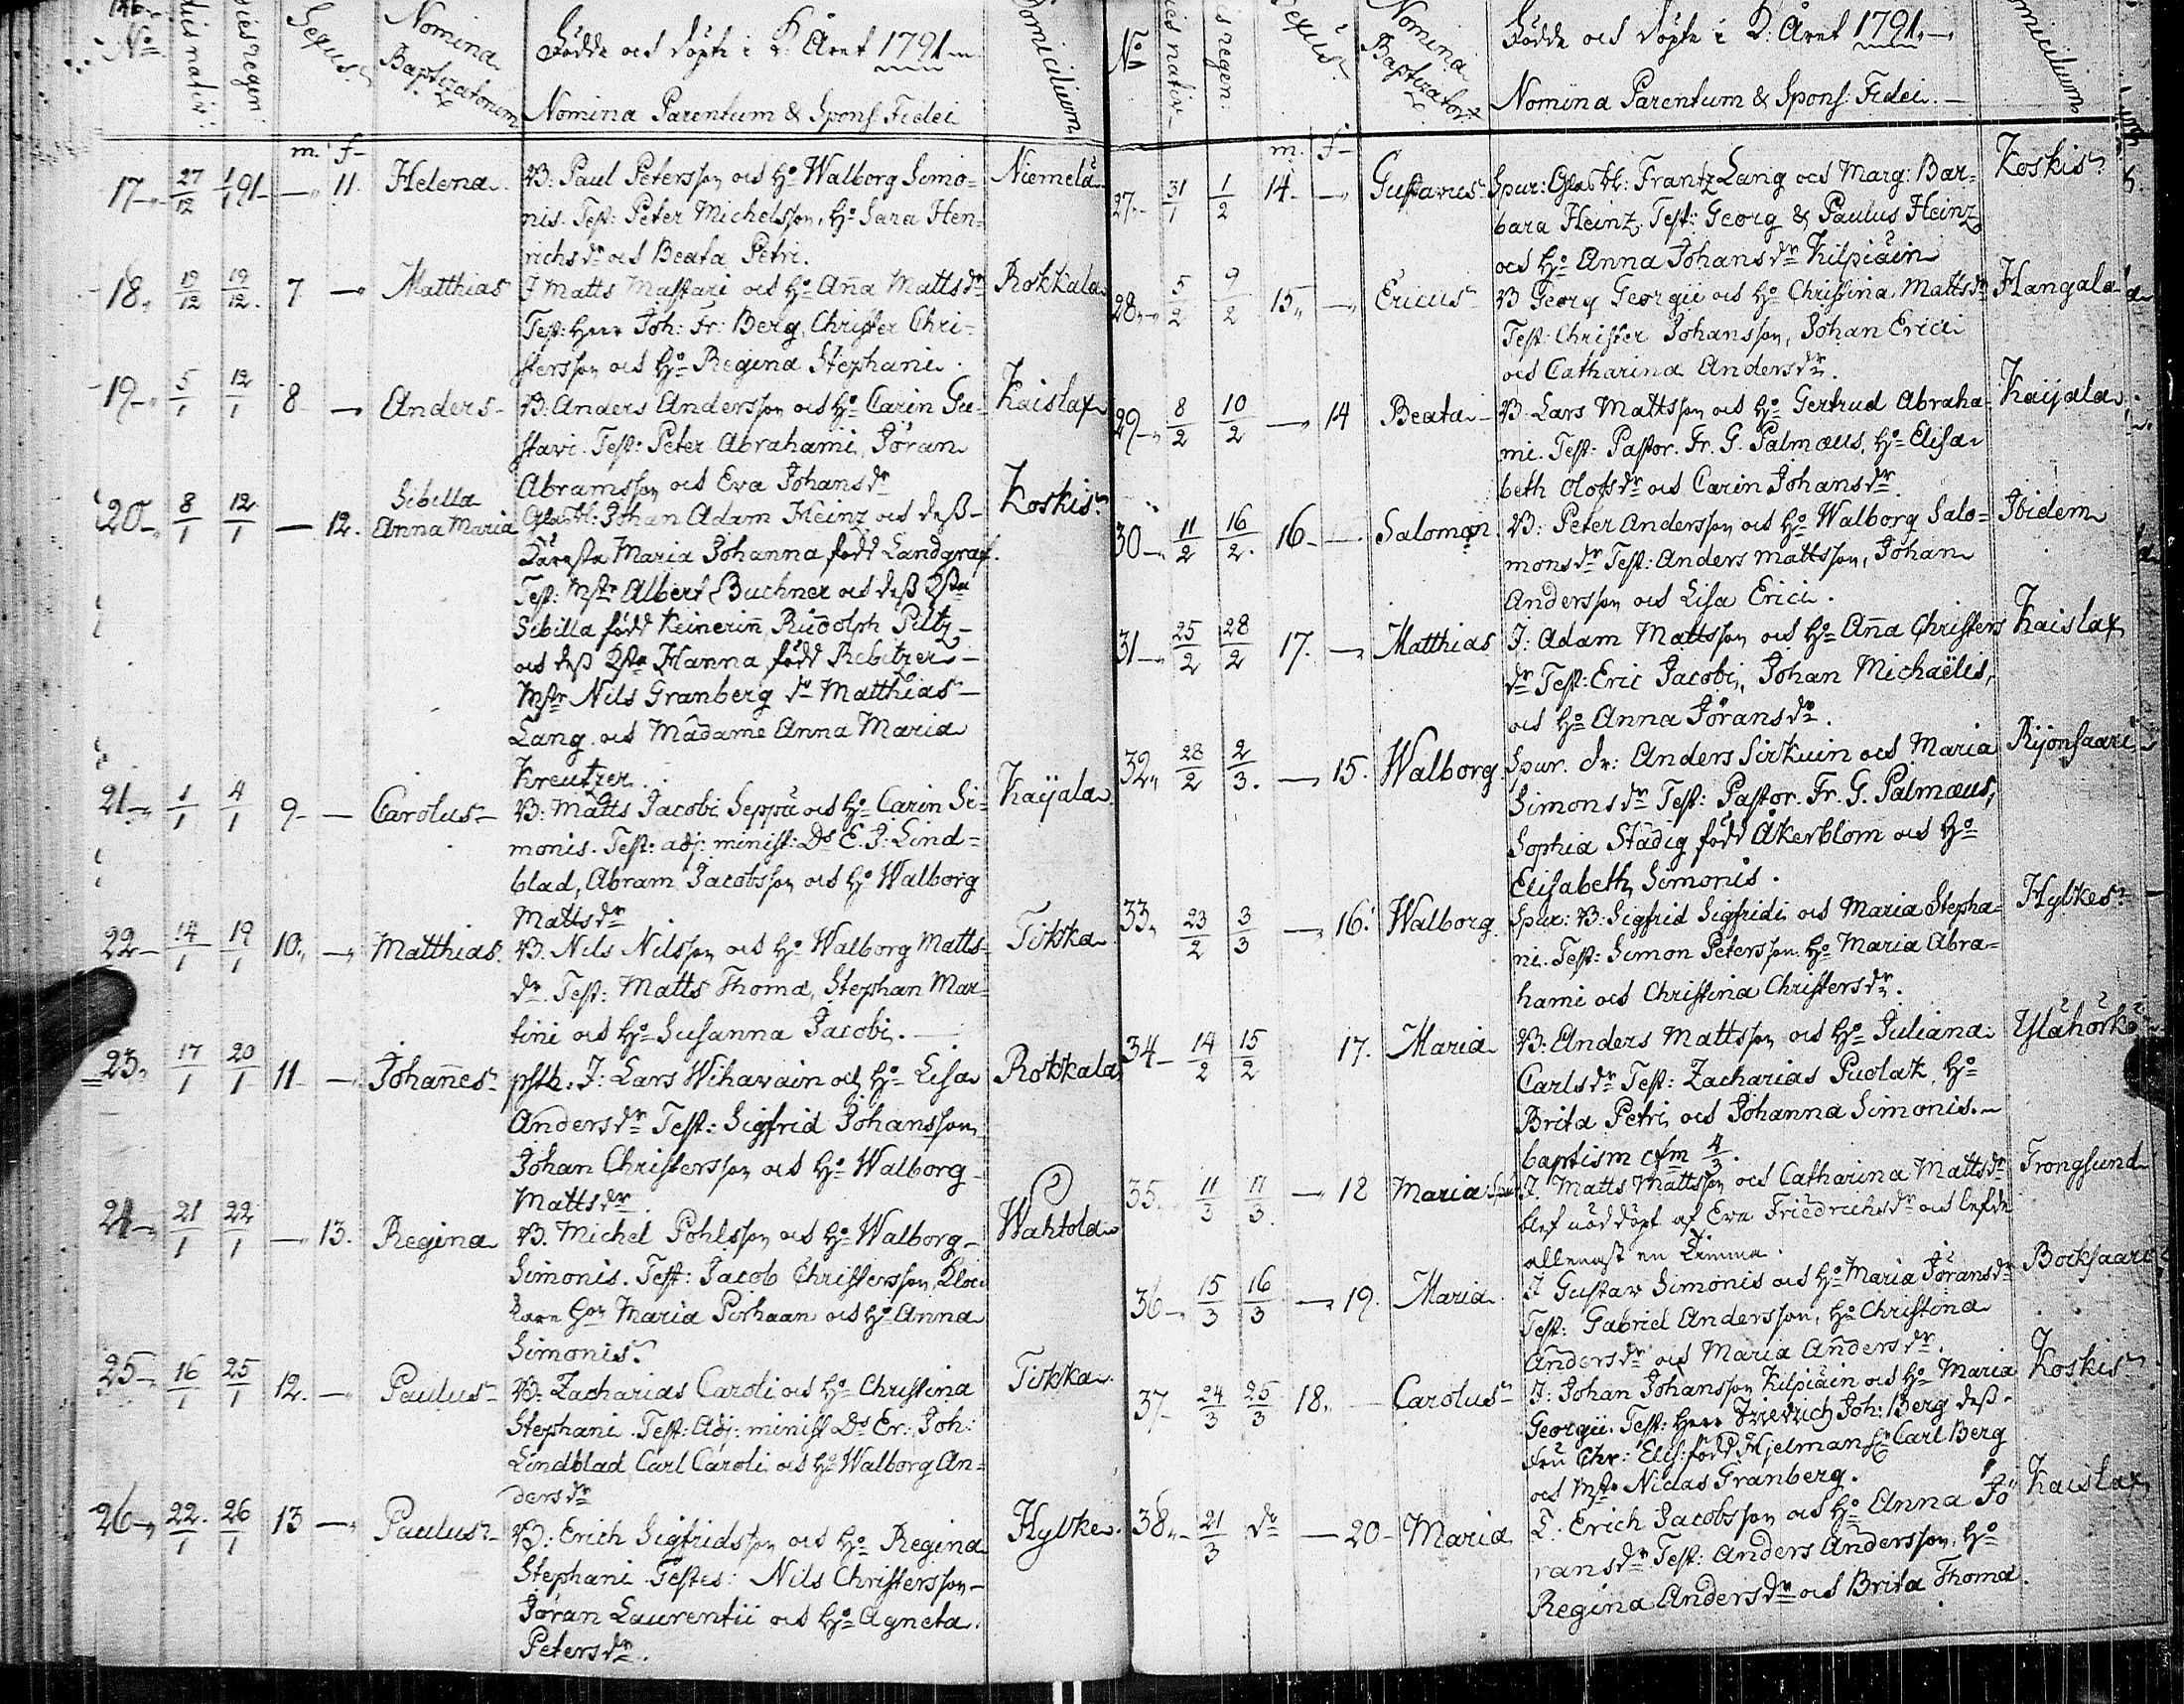 146.
No
dies nativ:
dies regen.
Sexus.
Nomina Baptizatorum
Födde och döpte i D: Året 1791
Nomina Parentum & Spons. Fidei
Domicilium
m. f
17 27/12 1/1 91 — 11. Helena. B: Paul Petersson och Ho Walborg Simo= Niemelä
nis. Test: Peter Michelsson, Ho Sara Hen=
richsdr och Beata Petri.
18. 19/12 19/12. 7 — Matthias J Matts Mastari och Ho Aña Mattsdr Rokkala
Test: Herr Joh: Fr: Berg, Christer Chri=
stersson och Ho Regina Stephani.
19 5/1 12/1 8 — Anders B: Anders Andersson och Ho Carin Gu= Kaislax
stavi. Test: Peter Abrahami, Jöran
Abramsson och Eva Johansdr
20 8/1 12/1 — 12. Sibilla
Anna Maria Johan Adam Heinz och dess Koskis
Käresta Maria Johanna född Landgraf.
Test: Mstr Albert Buchner och dess Ksta
Sibilla född Keineriñ, Rudolph Putz
och dess Ksta Hanna född Rebitzer
Mstr Nils Granberg do Matthias
Lang och Madame Anna Maria
Kreutzer.
21 1/1 4/1 9 — Carolus B: Matts Jacobi Seppä och Ho Carin Si= Kaijala
monis. Test: adj: minist: Ds E. J: Lind=
blad, Abram Jacobsson och Ho Walborg
Mattsdr
22 14/1 19/1 10. — Matthias. B. Nils Nilsson och Ho Walborg Matts= Tikka
dr. Test: Matts Thomæ, Stephan Mar=
tini och Ho Susanna Jacobi.
23. 17/1 20/1 11 — Johañes J: Lars Wihavain och Ho Lisa Rokkala
Andersdr Test: Sigfrid Johansson,
Johan Christersson och Ho Walborg
Mattsdr.
24 21/1 22/1 — 13. Regina B. Michel Pohlsson och Ho Walborg Wahtola
Simonis. Test: Jacob Christersson, Kloc=
Maria Pirhaan och Ho Anna
Simonis.
25 16/1 25/1 12. — Paulus B: Zacharias Caroli och Ho Christina Tikka
Stephani. Test: Adj: minist Ds Er: Joh:
Lindblad Carl Caroli och Ho Walborg An=
dersdr
26 22/1 26/1 13 — Paulus B: Erich Sigfridsson och Ho Regina Hylke
Stephani. Testes: Nils Christersson
Jöran Laurentii och Ho Agneta
Petersdr.
No
dies nativ
dies regen.
Sexus.
Nomina Baptizator
Födde och döpte i D: Året 1791.
Nomina Parentum & Spons. Fidei.
Domicilium
m. f
27 31/1 1/2 14 — Gustavus Spur: Frantz Lang och Marg: Bar= Koskis
bara Heinz. Test: Georg & Paulus Heinz
och Ho Anna Johansdr Kilpiäin
28 5/2 9/2 15. — Ericus B Georg Georgii och Ho Christina Mattsdr Hangala
Test: Christer Johansson, Johan Erici
och Catharina Andersdr.
29 8/2 10/2 — 14 Beata B. Lars Mattsson och Ho Gertrud Abraha= Kaijala
mi. Test: Pastor. Fr. G. Palmæus, Ho Elisa
beth Olofsdr och Carin Johansdr
30 11/2 16/2. 16 — Salomon B: Peter Andersson och Ho Walborg Salo= Ibidem
monsdr Test: Anders Mattsson, Johan
Andersson och Lisa Erici.
31 25/2 28/2 17. — Matthias J: Adam Mattsson och Ho Aña Christers Kaislax
dr Test: Eric Jacobi, Johan Michaëlis,
och Ho Anna Jöransdr.
32. 28/2 2/3. — 15. Walborg Spur. dr: Anders Sirkuin och Maria Rijonsaari
Simonsdr Test: Pastor. Fr. G. Palmæus,
Sophia Städig född Åkerblom och Ho
Elisabeth Simonis.
33. 23/2 3/3 — 16. Walborg Spur: B: Sigfrid Sigfridi och Maria Stepha= Hylkes
ni. Test: Simon Petersson Ho Maria Abra=
hami och Christina Christersdr.
34 14/2 15/2 17. Maria B: Anders Mattsson och Ho Juliana Ylähörk
Carlsdr Test: Zacharias Puolak, Ho
Brita Petri och Johanna Simonis.
baptism cfm 4/3.
35. 11/3 11/3. — 18 Maria J. Matts Mattsson och Catharina Mattsdr Trongsund
blef nöddöpt af Eva Friedrichsdr och lefde
allenast en Timma.
36 15/3 16/3 — 19. Maria J Gustav Simonis och Ho Maria Jöransdr Bocksaari
Test: Gabriel Andersson, Ho Christina
Andersdr och Maria Andersdr.
37 24/3 25/3 18. — Carolus J: Johan Johansson Kilpiäin och Ho Maria Koskis
Georgii. Test: Herr Friedrich Joh: Berg dess
fru Chr: Elis: född Hjelman, Carl Berg
och Mstr Niclas Granberg.
38. 21/3 do — 20 Maria Erich Jacobsson och Ho Anna Jö Kaislax
ransdr Test: Anders Andersson, Ho
Regina Andersdr och Brita Thomæ.